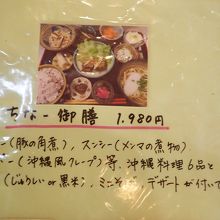 ちなー御膳 1.980円
ー(豚の角煮), スンシー(メンマの煮物)
ー(沖縄風クレープ)等、沖縄料理6品と
(じゅーしぃ or 黒米), ミニそば, デザートが付い